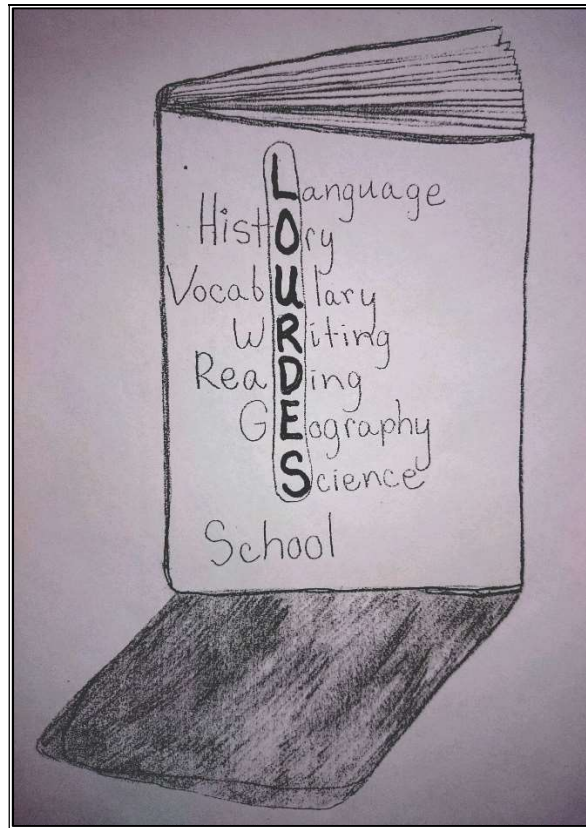 Language
History
Vocabulary
Writing
Reading
Geography
Science
School